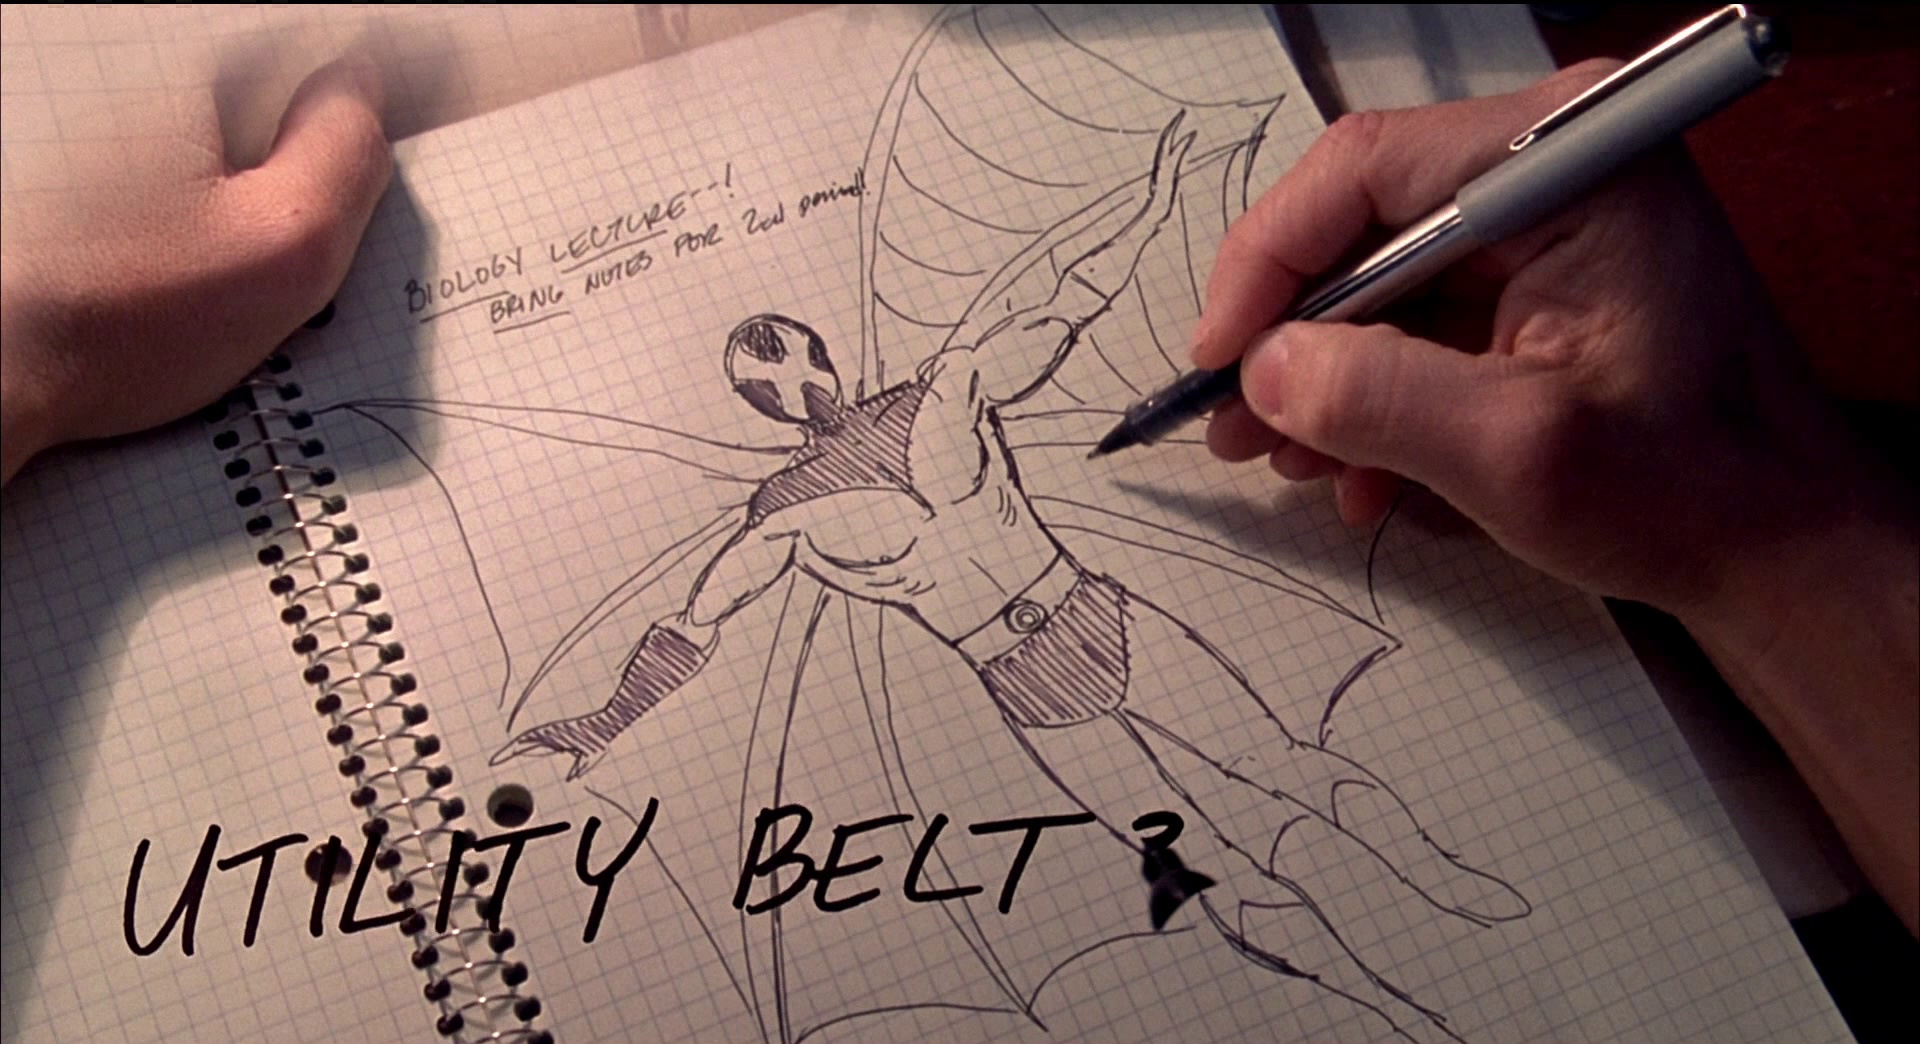 BIOLOGY LECTURE--!
BRING NOTES FOR 2nd period!!
UTILITY BELT?